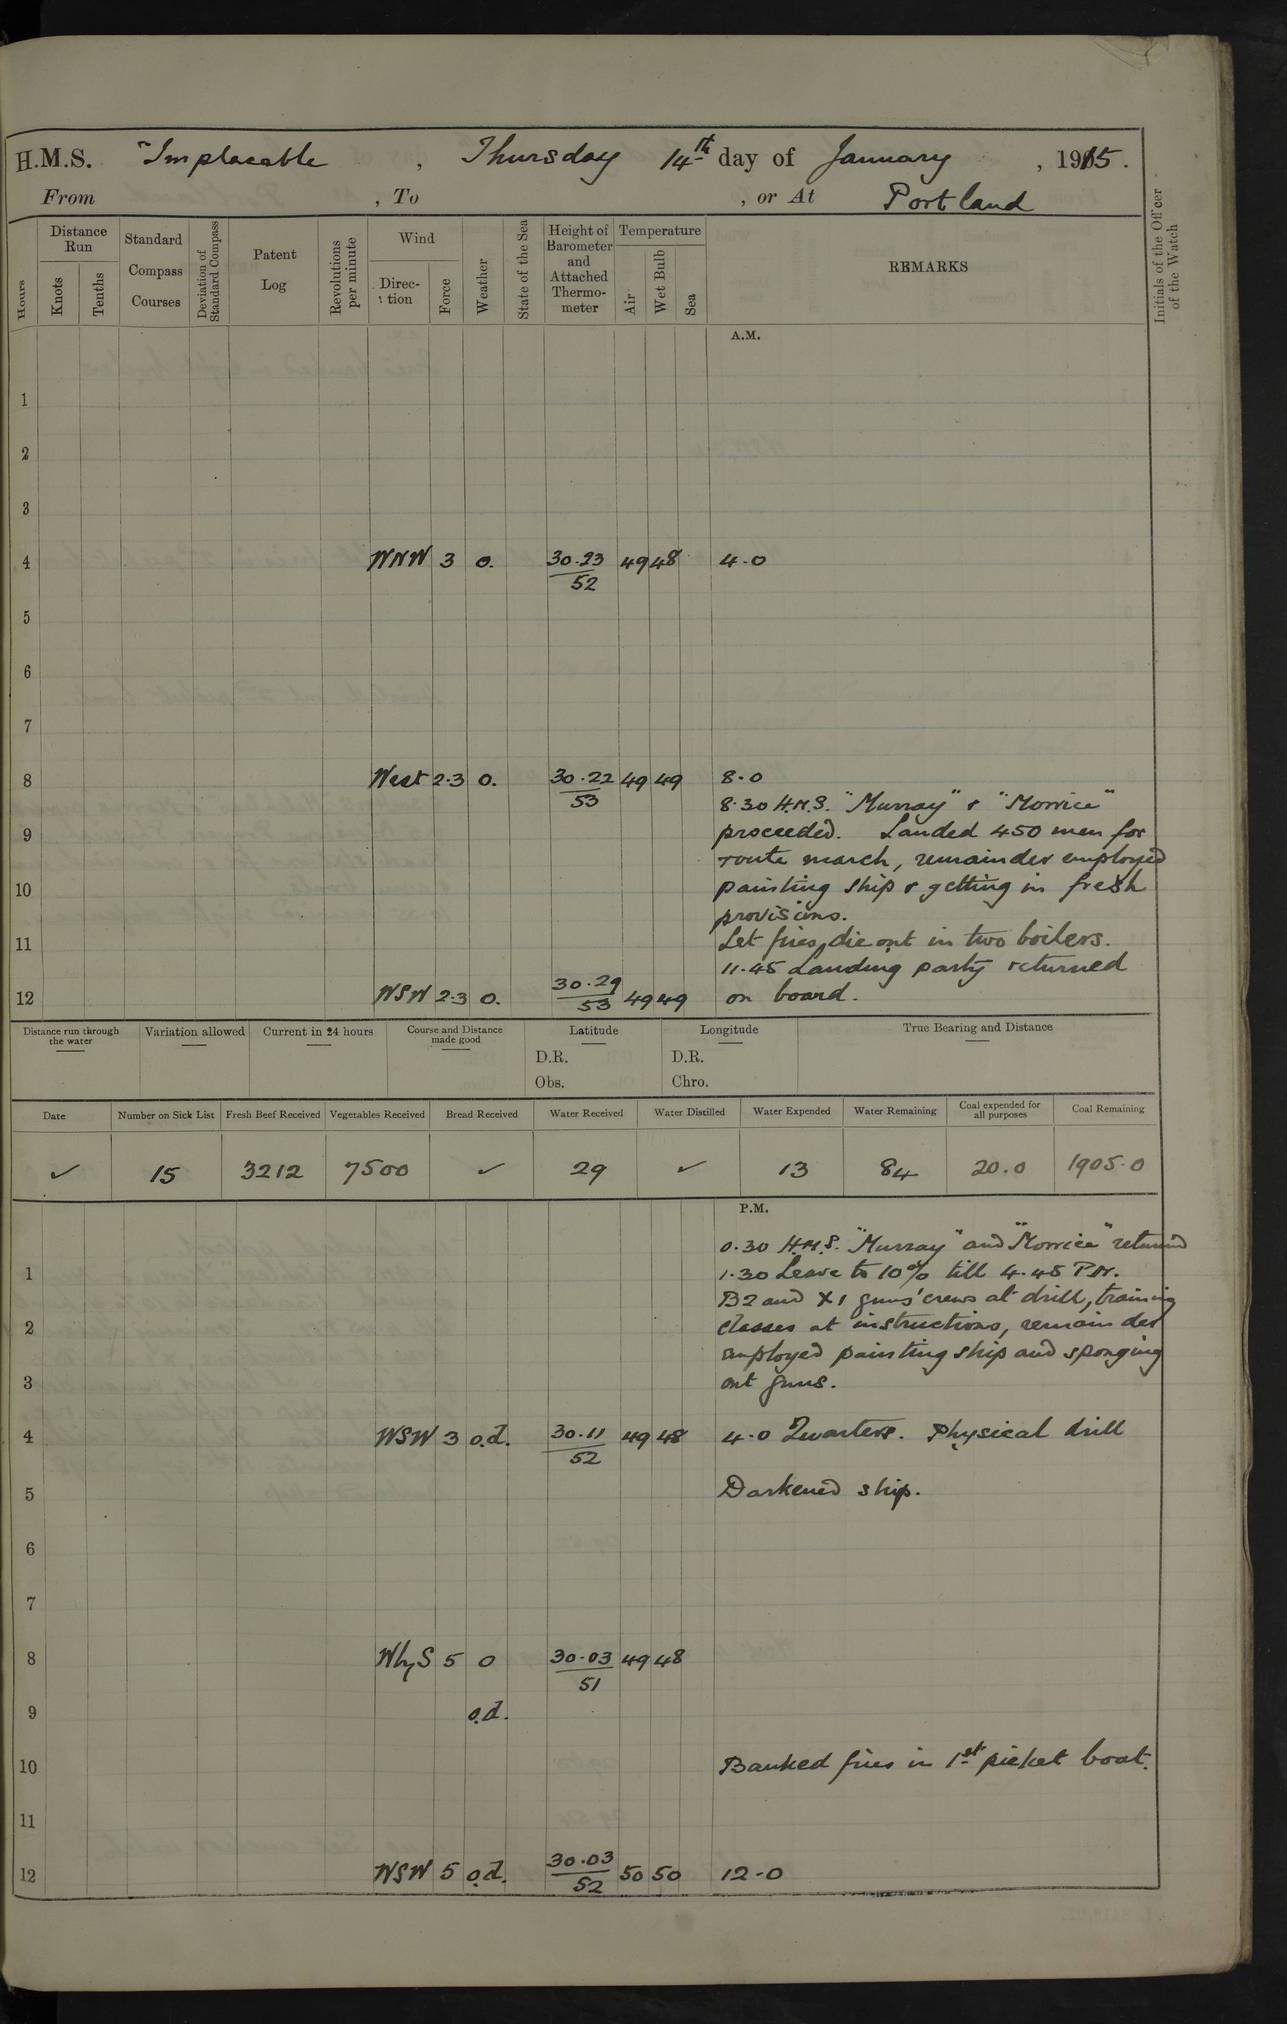 H.M.S. "Implacable , Thursday 14th day of January , 1915.
From , To , or At Portland
Hours
Distance Run
Knots
Tenths
Standard Compass Courses
Deviation of Standard Compass
Patent Log
Revolutions per minute
Wind
Direction
Force
Weather
State of the Sea
Height of Barometer and Attached Thermometer
Temperature
Air
Wet Bulb
Sea
REMARKS
Initials of the Officer of the Watch
A.M.
1
2
3
4 WNW 3 o. 30.23/52 49 48 4.0
5
6
7
8 West 2.3 o. 30.22/53 49 49 8.0
8.30 H.M.S. "Murray" & "Morrice"
9 proceeded. Landed 450 men for
route march, remainder employed
10 painting ship & getting in fresh
provisions.
11 Let fires die out in two boilers.
11.45 Landing party returned
12 WSW 2.3 o. 30.29/53 49 49 on board.
Distance run through the water
Variation allowed
Current in 24 hours
Course and Distance made good
Latitude
D.R.
Obs.
Longitude
D.R.
Chro.
True Bearing and Distance
Date Number on Sick List Fresh Beef Received Vegetables Received Bread Received Water Received Water Distilled Water Expended Water Remaining Coal expended for all purposes Coal Remaining
✓ 15 3212 7500 ✓ 29 ✓ 13 84 20.0 1905.0
P.M.
0.30 H.M.S. "Murray" and "Morrice" returned
1 1.30 Leave to 10% till 4.45 P.M.
B2 and X1 guns' crews at drill, training
2 classes at instructions, remainder
employed painting ship and sponging
3 out guns.
4 WSW 3 o.d. 30.11/52 49 48 4.0 Quarters. Physical drill
5 Darkened ship.
6
7
8 WbyS 5 o 30.03/51 49 48
9 o.d.
10 Banked fires in 1st picket boat.
11
12 WSW 5 o.d. 30.03/52 50 50 12.0